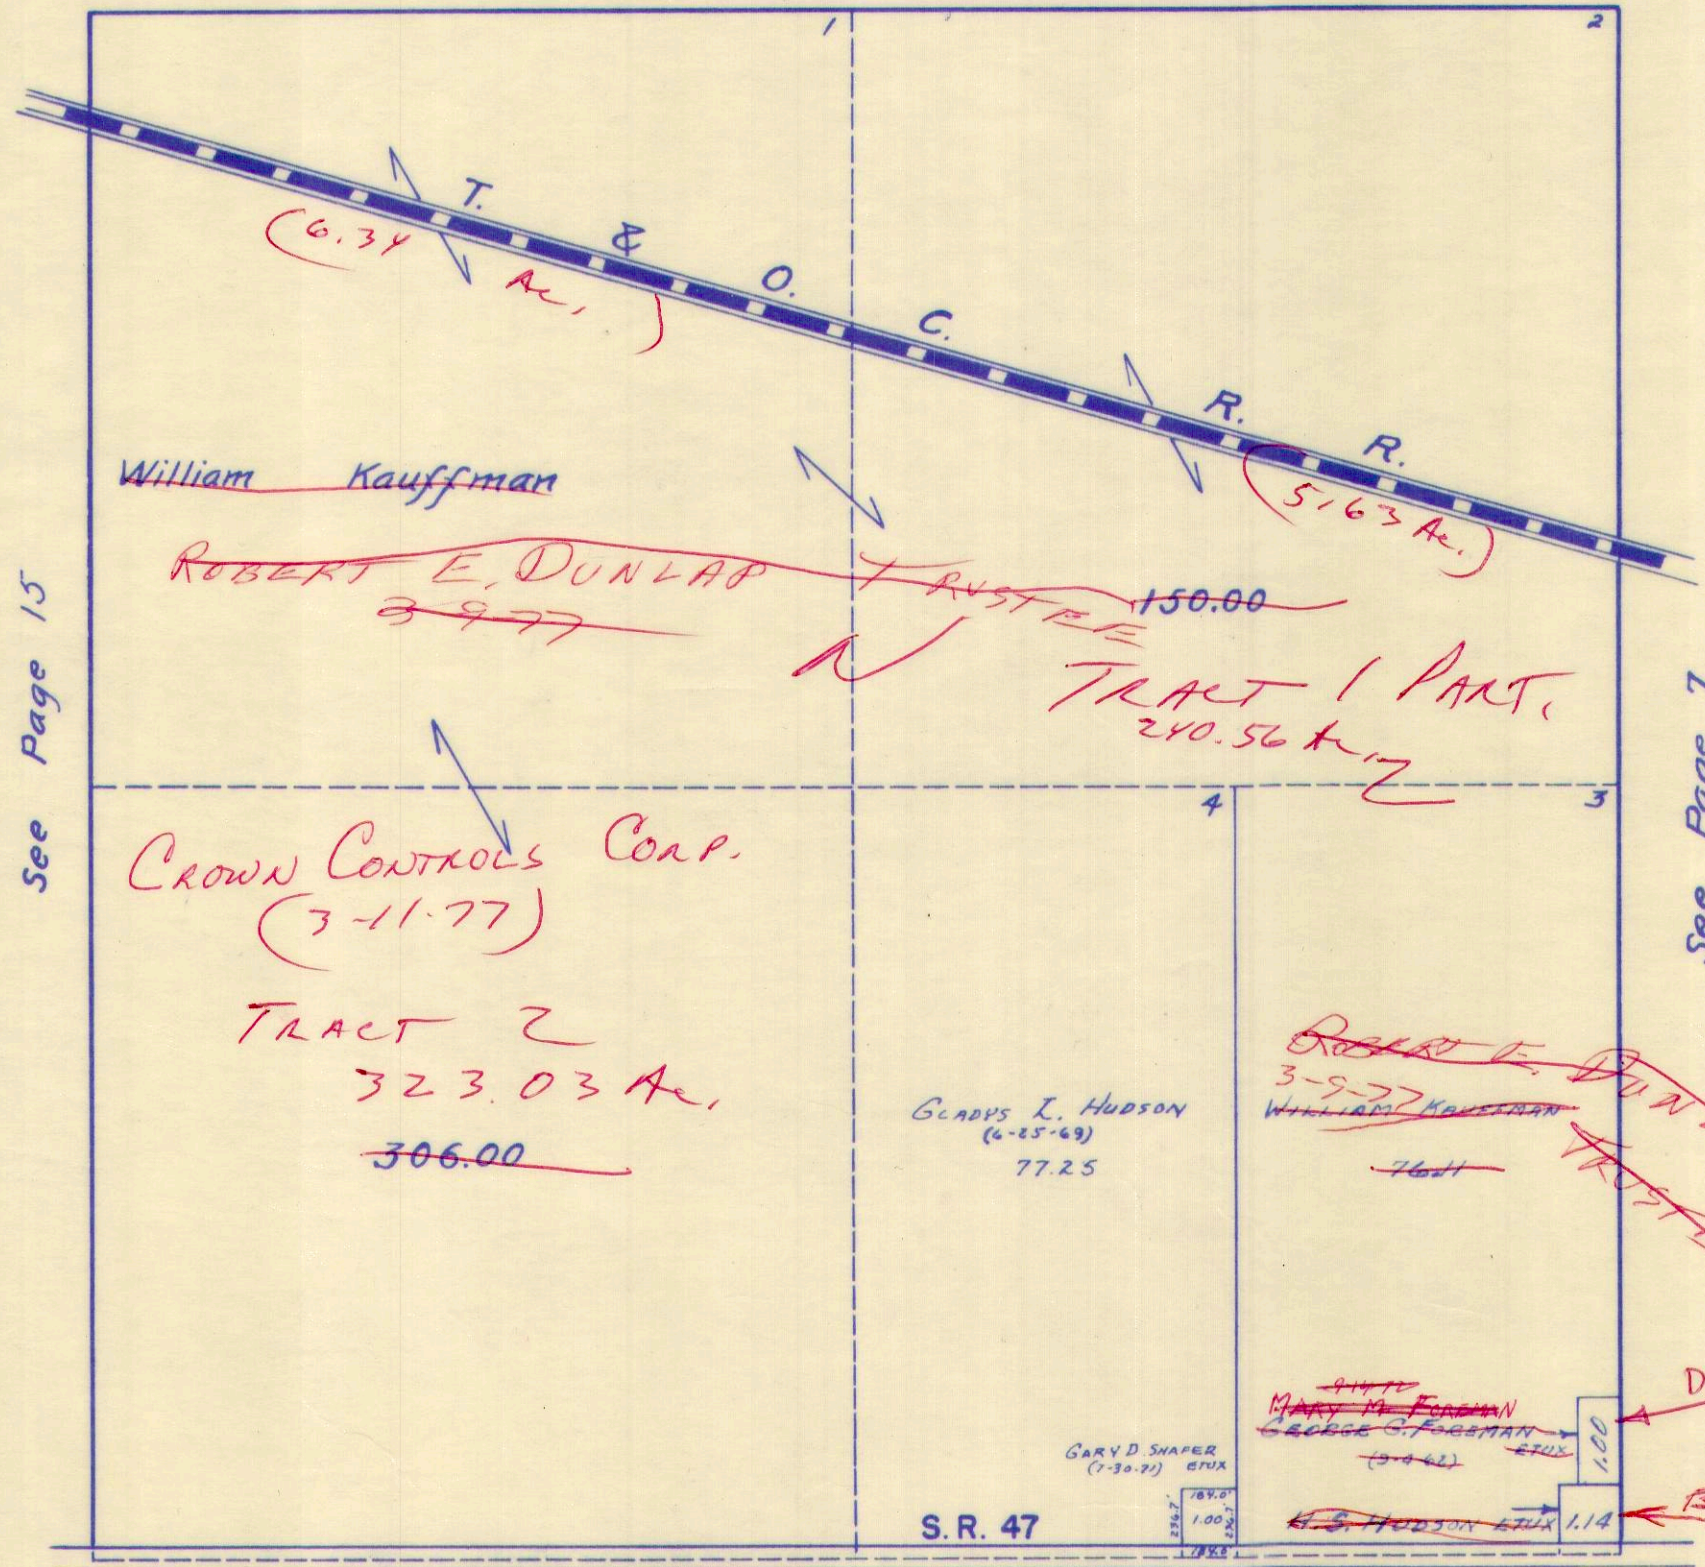 1
2
T. & O. C. R. R.
(6.34 Ac.)
(5.63 Ac.)
William Kauffman
ROBERT E. DUNLAP TRUSTEE
3-9-77
150.00
TRACT 1 PART.
240.56 Ac.
See Page 15
See Page 7
4
3
CROWN CONTROLS CORP.
(3-11-77)
TRACT 2
323.03 Ac.
306.00
GLADYS I. HUDSON
(6-25-69)
77.25
ROBERT E. DUN
3-9-77
WILLIAM KAUFFMAN
76.11
9-14-72
MARY M. FOREMAN
GEORGE G. FOREMAN
ETUX
1.00
D
GARY D. SHAFER
(7-30-71) ETUX
184.0'
236.7'
1.00
236.7'
184.0'
H.S. HUDSON ETUX
1.14
S.R. 47